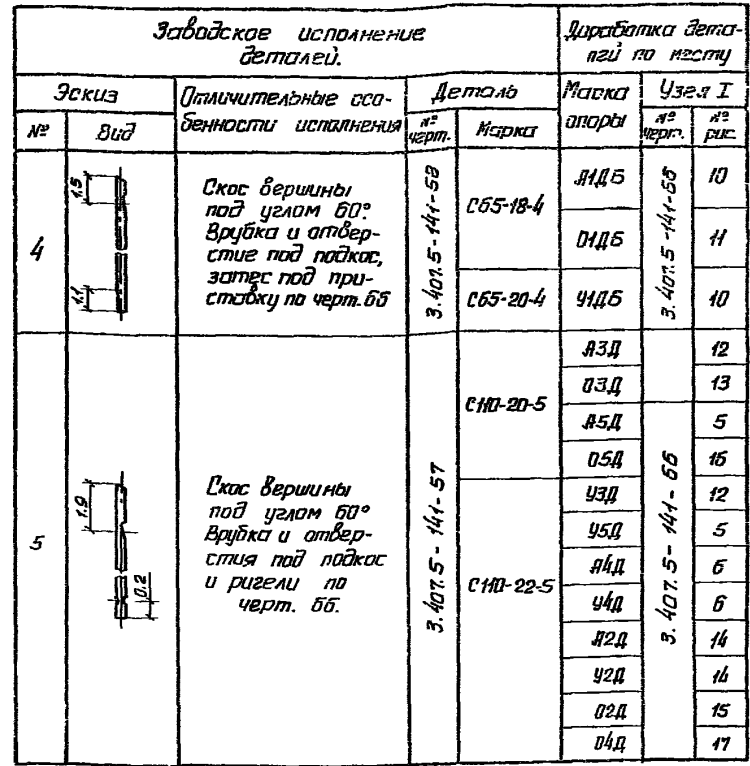 Заводское исполнение
деталей.
Доработка дета-
лей по месту
Эскиз
Отличительные осо-
бенности исполнения
Деталь
Марка
опоры
Узел I
№
Вид
№
черт.
Марка
№
черт.
№
рис.
4
1.5
1.1
Скос вершины
под углом 60°.
Врубка и отвер-
стие под подкос,
затес под при-
ставку по черт. 66
3.407.5-141-58
С65-18-4
С65-20-4
А1ДБ
О1ДБ
У1ДБ
3.407.5-141-66
10
11
10
5
1.9
0.2
Скос вершины
под углом 60°
Врубка и отвер-
стия под подкос
и ригели по
черт. 66.
3.407.5-141-57
С110-20-5
С110-22-5
А3Д
О3Д
А5Д
О5Д
У3Д
У5Д
А4Д
У4Д
А2Д
У2Д
О2Д
О4Д
3.407.5-141-66
12
13
5
16
12
5
6
6
14
14
15
17